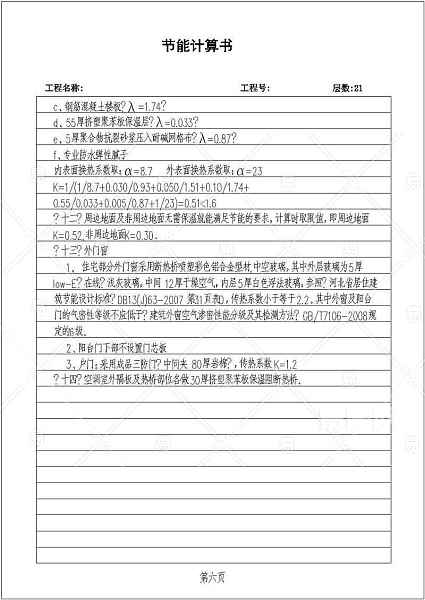 节能计算书
工程名称: 工程号: 层数:21
c、钢筋混凝土楼板?λ=1.74?
d、55厚挤塑聚苯板保温层?λ=0.033?
e、5厚聚合物抗裂砂浆压入耐碱网格布?λ=0.87?
f、专业防水弹性腻子
内表面换热系数取:α=8.7 外表面换热系数取:α=23
K=1/(1/8.7+0.030/0.93+0.050/1.51+0.10/1.74+
0.55/0.033+0.005/0.87+1/23)=0.51<1.6
?十二?周边地面及非周边地面无需保温就能满足节能的要求,计算时取限值,即周边地面
K=0.52.非周边地面K=0.30。
?十三?外门窗
1、住宅部分外门窗采用断热桥喷塑彩色铝合金型材,中空玻璃,其中外层玻璃为5厚
low-E?在线?浅灰玻璃,中间12厚干燥空气,内层5厚白色浮法玻璃,参照?河北省居住建
筑节能设计标准?DB13(J)63-2007 第31页表D,传热系数小于等于2.2、其中外窗及阳台
门的气密性等级不应低于?建筑外窗空气渗密性能分级及其检测方法?GB/T7106-2008规
定的6级.
2、阳台门下部不设置门芯板
3、户门:采用成品三防门?中间夹80厚岩棉?,传热系数K=1.2
?十四?空调室外隔板及热桥部位各做30厚挤塑聚苯板保温阻断热桥.
第六页